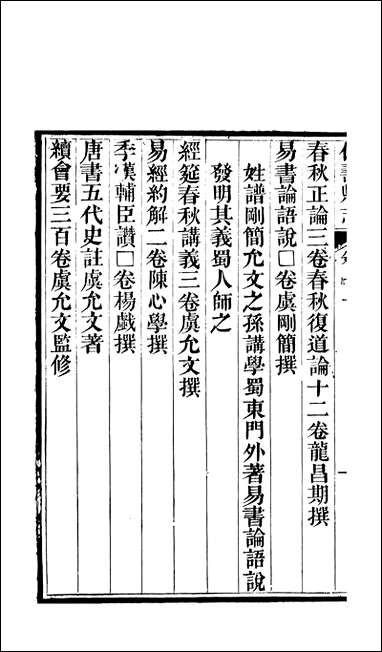 春秋正論三卷春秋復道論十二卷龍昌期撰
易書論語說□卷虞剛簡撰
姓譜剛簡允文之孫講學蜀東門外著易書論語說
發明其義蜀人師之
經筵春秋講義三卷虞允文撰
易經約解二卷陳心學撰
季漢輔臣讚□卷楊戲撰
唐書五代史註虞允文著
續會要三百卷虞允文監修